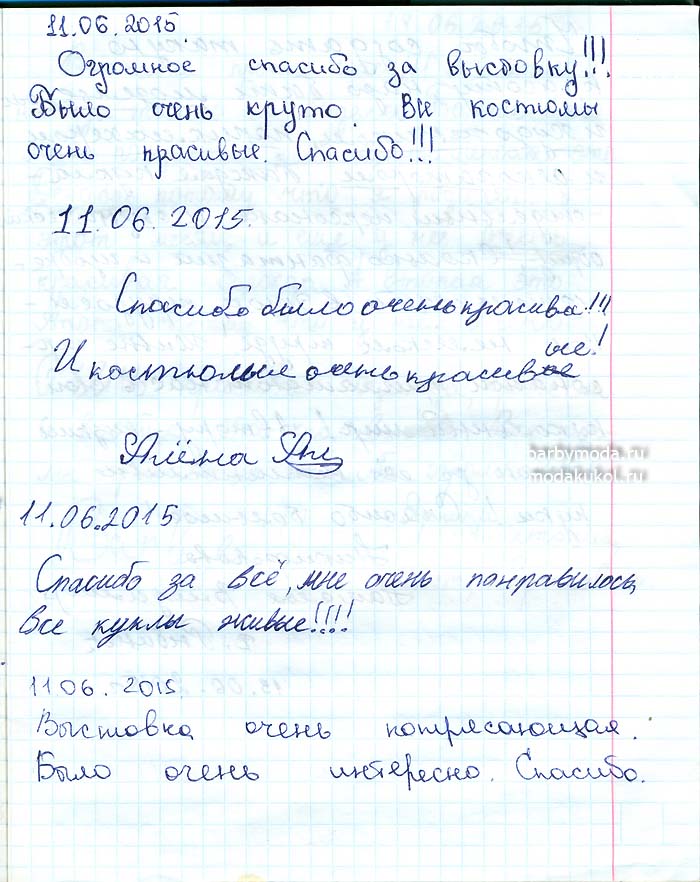 11.06.2015.
Огромное спасибо за выстовку!!!
Было очень круто. Все костюмы
очень красивые. Спасибо!!!
11.06.2015.
Спасибо было очень красива!!!
И костюмые очень красивое
ые!
Алёна
barbymoda.ru
modakukol.ru
11.06.2015
Спасибо за всё, мне очень понравилось,
все куклы живые!!!!
11 06. 2015.
Выстовка очень потресающая.
Было очень интересно. Спасибо.